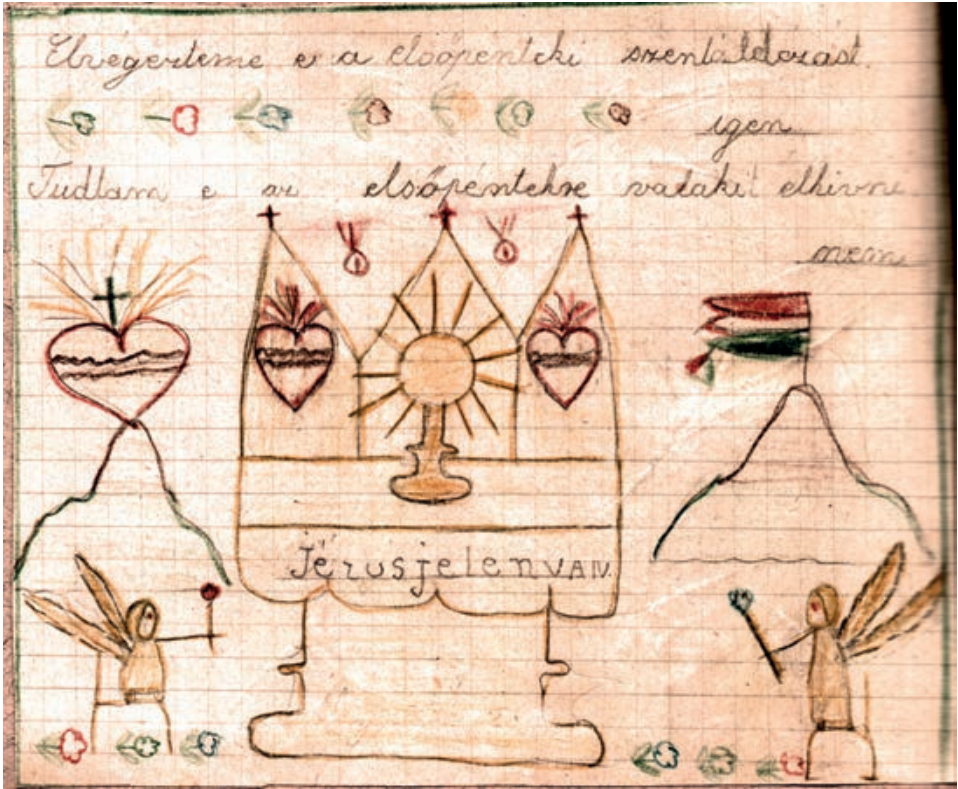 Elvégezteme e a elsőpénteki szentáldozást.
igen
Tudtam e az elsőpéntekre valakit elhivni
nem
JézusjelenVAN.